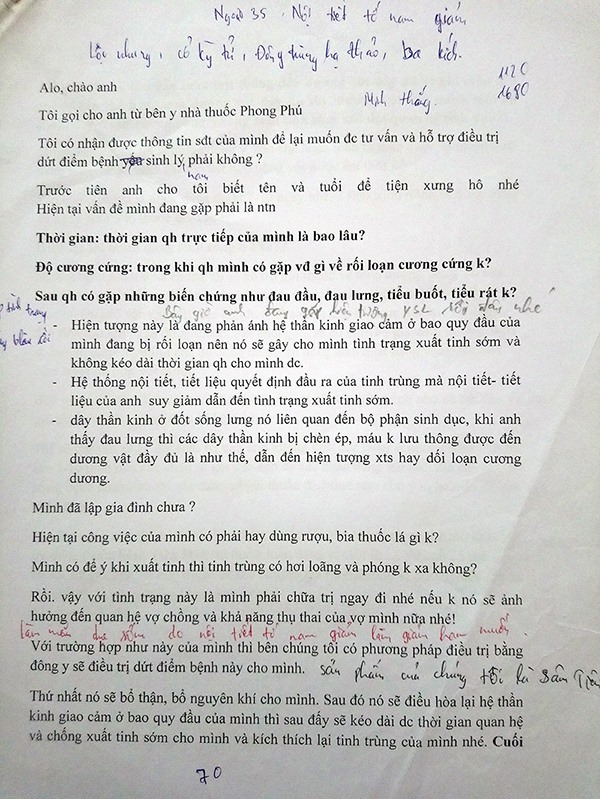 Người 35. Nội tiết tố nam giảm
Lộc nhung, cỏ kỳ tử, Đông trùng hạ thảo, Ba kích.
1120
1680
Minh thắng.
Alo, chào anh
Tôi gọi cho anh từ bên y nhà thuốc Phong Phú
Tôi có nhận được thông tin sdt của mình để lại muốn đc tư vấn và hỗ trợ điều trị
dứt điểm bệnh yếu sinh lý phải không ?
nam
Trước tiên anh cho tôi biết tên và tuổi để tiện xưng hô nhé
Hiện tại vấn đề mình đang gặp phải là ntn
Thời gian: thời gian qh trực tiếp của mình là bao lâu?
Độ cương cứng: trong khi qh mình có gặp vđ gì về rối loạn cương cứng k?
Sau qh có gặp những biến chứng như đau đầu, đau lưng, tiểu buốt, tiểu rát k?
Bây giờ anh đang gặp hiện tượng YSL rồi đấy nhé
tình trạng
- Hiện tượng này là đang phản ánh hệ thần kinh giao cảm ở bao quy đầu của
mình đang bị rối loạn nên nó sẽ gây cho mình tình trạng xuất tinh sớm và
không kéo dài thời gian qh cho mình dc.
- Hệ thống nội tiết, tiết liệu quyết định đầu ra của tinh trùng mà nội tiết- tiết
liệu của anh suy giảm dẫn đến tình trạng xuất tinh sớm.
- dây thần kinh ở đốt sống lưng nó liên quan đến bộ phận sinh dục, khi anh
thấy đau lưng thì các dây thần kinh bị chèn ép, máu k lưu thông được đến
dương vật đầy đủ là như thế, dẫn đến hiện tượng xts hay dối loạn cương
dương.
Mình đã lập gia đình chưa ?
Hiện tại công việc của mình có phải hay dùng rượu, bia thuốc lá gì k?
Mình có để ý khi xuất tinh thì tinh trùng có hơi loãng và phóng k xa không?
Rồi. vậy với tình trạng này là mình phải chữa trị ngay đi nhé nếu k nó sẽ ảnh
hưởng đến quan hệ vợ chồng và khả năng thụ thai của vợ mình nữa nhé!
lâm mãn dục sớm do nội tiết tố nam giảm làm giảm ham muốn.
Với trường hợp như này của mình thì bên chúng tôi có phương pháp điều trị bằng
đông y sẽ điều trị dứt điểm bệnh này cho mình. sản phẩm của chúng tôi là Sâm Tiên
Thứ nhất nó sẽ bổ thận, bổ nguyên khí cho mình. Sau đó nó sẽ điều hòa lại hệ thần
kinh giao cảm ở bao quy đầu của mình thì sau đấy sẽ kéo dài dc thời gian quan hệ
và chống xuất tinh sớm cho mình và kích thích lại tinh trùng của mình nhé. Cuối
70